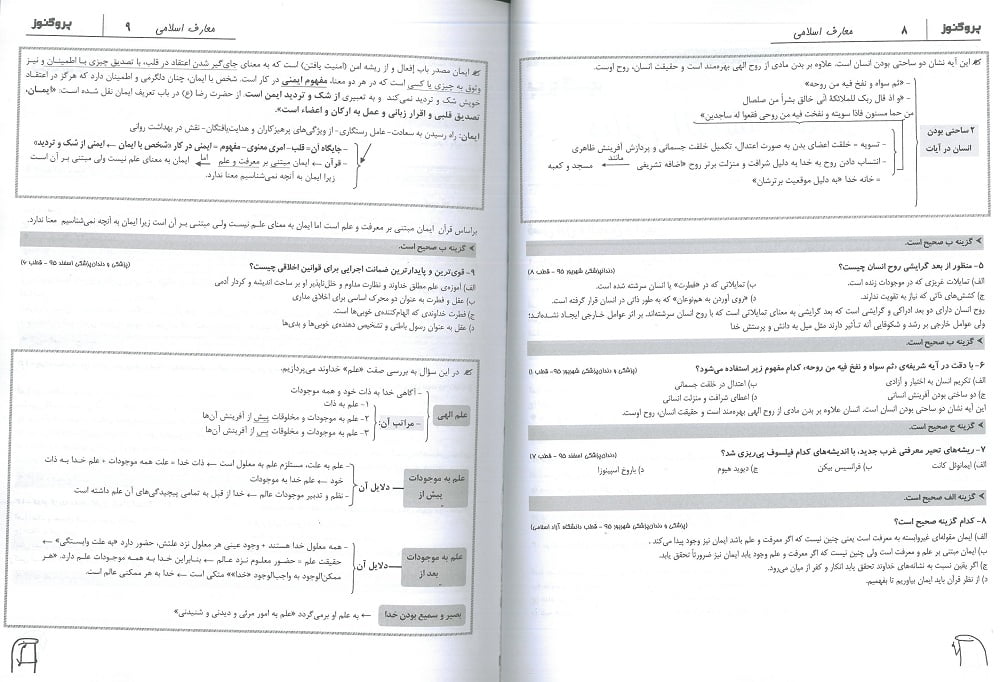 پروگنوز
۸
معارف اسلامی
این آیه نشان دو ساحتی بودن انسان است. علاوه بر بدن مادی از روح الهی بهره‌مند است و حقیقت انسان، روح اوست.
۲ ساحتی بودن
انسان در آیات
- «ثم سواه و نفخ فیه من روحه»
- «و اذ قال ربک للملائکة انی خالق بشراً من صلصال
من حما مسنون فاذا سویته و نفخت فیه من روحی فقعوا له ساجدین»
- تسویه = خلقت اعضای بدن به صورت اعتدال، تکمیل خلقت جسمانی و پردازش آفرینش ظاهری
- انتساب دادن روح به خدا به دلیل شرافت و منزلت برتر روح «اضافه تشریفی مانند ← مسجد و کعبه
= خانه خدا «به دلیل موقعیت برترشان»
گزینه ب صحیح است.
۵- منظور از بعد گرایشی روح انسان چیست؟
(دندانپزشکی شهریور ۹۵ - قطب ۸)
الف) تمایلات غریزی که در موجودات زنده است.
ب) تمایلاتی که در «فطرت» یا انسان سرشته شده است.
ج) کشش‌های ذاتی که نیاز به تقویت ندارند.
د) «روی آوردن به هم‌نوعان» که به طور ذاتی در انسان قرار گرفته است.
روح انسان دارای دو بعد ادراکی و گرایشی است که بعد گرایشی به معنای تمایلاتی است که با روح انسان سرشته‌اند. بر اثر عوامل خارجی ایجاد نشده‌اند؛
ولی عوامل خارجی بر رشد و شکوفایی آنه تأثیر دارند مثل میل به دانش و پرستش خدا
گزینه ب صحیح است.
۶- با دقت در آیه شریفه‌ی «ثم سواه و نفخ فیه من روحه» کدام مفهوم زیر استفاده می‌شود؟
(پزشکی و دندانپزشکی شهریور ۹۵ - قطب ۱)
الف) تکریم انسان به اختیار و آزادی
ب) اعتدال در خلقت جسمانی
ج) دو ساحتی بودن آفرینش انسانی
د) اعطای شرافت و منزلت انسانی
این آیه نشان دو ساحتی بودن انسان است. انسان علاوه بر بدن مادی از روح الهی بهره‌مند است و حقیقت انسان، روح اوست.
گزینه ج صحیح است.
۷- ریشه‌های تحیر معرفتی غرب جدید، با اندیشه‌های کدام فیلسوف پی‌ریزی شد؟
(دندانپزشکی اسفند ۹۵ - قطب ۷)
الف) ایمانوئل کانت
ب) فرانسیس بیکن
ج) دیوید هیوم
د) باروخ اسپینوزا
گزینه الف صحیح است.
۸- کدام گزینه صحیح است؟
(پزشکی و دندان پزشکی شهریور ۹۵ - قطب دانشگاه آزاد اسلامی)
الف) ایمان مقوله‌ای غیروابسته به معرفت است یعنی چنین نیست که اگر معرفت و علم باشد ایمان نیز وجود پیدا می‌کند.
ب) ایمان مبتنی بر علم و معرفت است ولی چنین نیست که اگر معرفت و علم وجود یابد ایمان نیز ضرورتاً تحقق یابد.
ج) اگر یقین نسبت به نشانه‌های خداوند تحقق یابد انکار و کفر از میان می‌رود.
د) از نظر قرآن باید ایمان بیاوریم تا بفهمیم.
معارف اسلامی
۹
پروگنوز
ایمان مصدر باب إفعال و از ریشه امن (امنیت یافتن) است که به معنای جای‌گیر شدن اعتقاد در قلب، با تصدیق چیزی با اطمینان و نیز
وثوق به چیزی یا کسی است که در هر دو معنا، مفهوم ایمنی در کار است. شخص با ایمان، چنان دلگرمی و اطمینان دارد که هرگز در اعتقاد
خویش شک و تردید نمی‌کند و به تعبیری از شک و تردید ایمن است. از حضرت رضا (ع) در باب تعریف ایمان نقل شده است: «ایمان،
تصدیق قلبی و اقرار زبانی و عمل به ارکان و اعضاء است».
ایمان: راه رسیدن به سعادت- عامل رستگاری- از ویژگی‌های پرهیزکاران و هدایت‌یافتگان- نقش در بهداشت روانی
- جایگاه آن= قلب- امری معنوی- مفهوم = ایمنی در کار «شخص با ایمان ← ایمنی از شک و تردید»
- قرآن ← ایمان مبتنی بر معرفت و علم اما ← ایمان به معنای علم نیست ولی مبتنی بر آن است
زیرا ایمان به آنچه نمی‌شناسیم معنا ندارد.
براساس قرآن ایمان مبتنی بر معرفت و علم است اما ایمان به معنای علم نیست ولی مبتنی بر آن است زیرا ایمان به آنچه نمی‌شناسیم معنا ندارد.
گزینه ب صحیح است.
۹- قوی‌ترین و پایدارترین ضمانت اجرایی برای قوانین اخلاقی چیست؟
(پزشکی و دندان‌پزشکی اسفند ۹۵ - قطب ۶)
الف) آموزه‌ی علم مطلق خداوند و نظارت مداوم و خلل‌ناپذیر او بر ساحت اندیشه و کردار آدمی
ب) عقل و فطرت به عنوان دو محرک اساسی برای اخلاق مداری
ج) فطرت خداوندی که الهام‌کننده‌ی خوبی‌ها است.
د) عقل به عنوان رسول باطنی و تشخیص دهنده‌ی خوبی‌ها و بدی‌ها
در این سؤال به بررسی صفت «علم» خداوند می‌پردازیم.
علم الهی
- آگاهی خدا به ذات خود و همه موجودات
- مراتب آن:
۱- علم به ذات
۲- علم به موجودات و مخلوقات پیش از آفرینش آن‌ها
۳- علم به موجودات و مخلوقات پس از آفرینش آن‌ها
علم به موجودات
پیش از
دلایل آن
- علم به علت، مستلزم علم به معلول است ← ذات خدا = علت همه موجودات + علم خدا به ذات
خود ← علم خدا به موجودات
- نظم و تدبیر موجودات عالم ← خدا از قبل به تمامی پیچیدگی‌های آن علم داشته است
علم به موجودات
بعد از
دلایل آن
- همه معلول خدا هستند + وجود عینی هر معلول نزد علتش، حضور دارد «به علت وابستگی» ←
حقیقت علم = حضور معلوم نزد عالم ← بنابراین خدا به همه موجودات علم دارد. «هر
ممکن‌الوجود به واجب‌الوجود «خدا»» متکی است ← خدا به هر ممکنی عالم است.
بصیر و سمیع بودن خدا ← به علم او برمی‌گردد «علم به امور مرئی و دیدنی و شنیدنی»